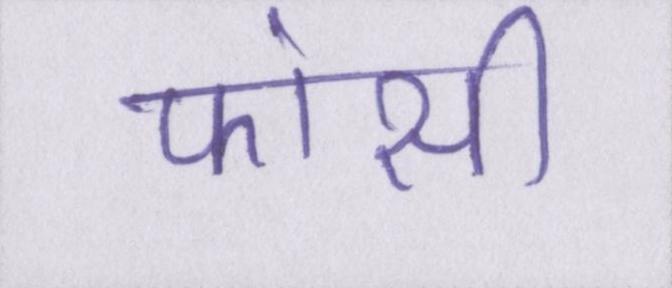 फांसी